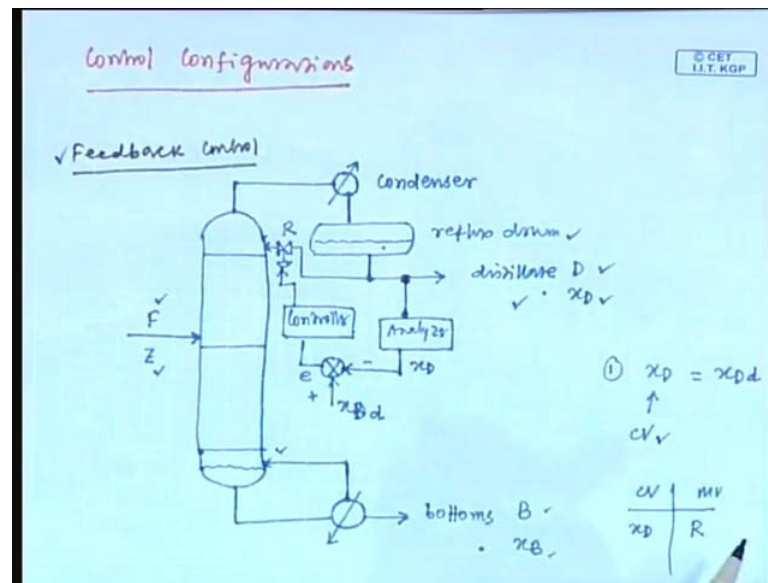 Control Configurations
© CET
I.I.T. KGP
Feedback Control
condenser
R
reflux drum
distillate D
x_D
F
Z
Controller
Analyzer
e
+
-
x_D
x_Dd
① x_D = x_Dd
↑
CV
CV | MV
x_D | R
bottoms B
x_B